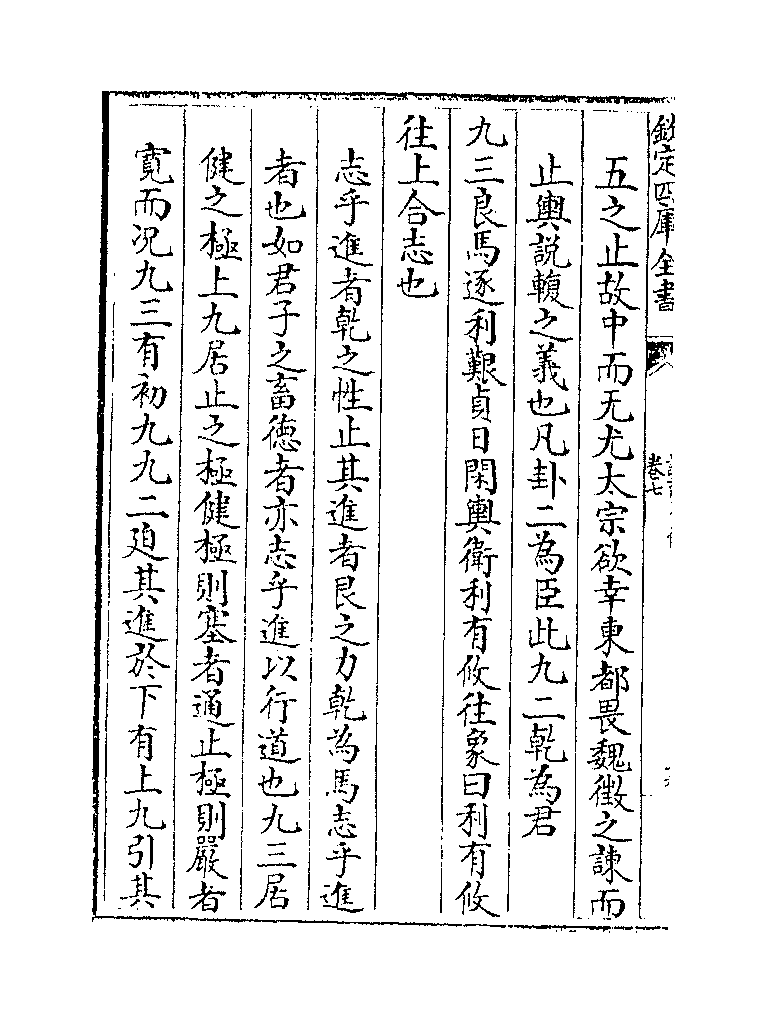 欽定四庫全書
卷七
五之止故中而无尤太宗欲幸東都畏魏徵之諫而
止輿説輹之義也凡卦二為臣此九二乾為君
九三良馬逐利艱貞日閑輿衛利有攸往象曰利有攸
往上合志也
志乎進者乾之性止其進者艮之力乾為馬志乎進
者也如君子之畜德者亦志乎進以行道也九三居
健之極上九居止之極健極則塞者通止極則嚴者
寛而况九三有初九九二廹其進於下有上九引其